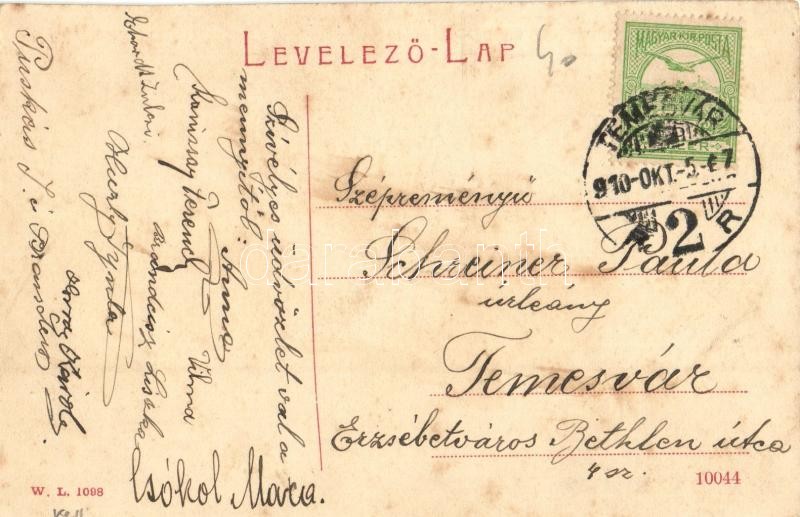 LEVELEZŐ-LAP
MAGYAR KIR. POSTA
TEMESVÁR
910-OKT.-5.
Szépreményü
Schreiner Paula
úrleány
Temesvár
Erzsébetváros Bethlen útca
4 sz.
Szívélyes üdvözlet val a
mennyitől:
Anna
Vilma
Kanissay Ferenc
Liszka
Hurly Gyula
Károly
Puskás J. és
Csókol Maca.
W. L. 1098
10044
darabanth